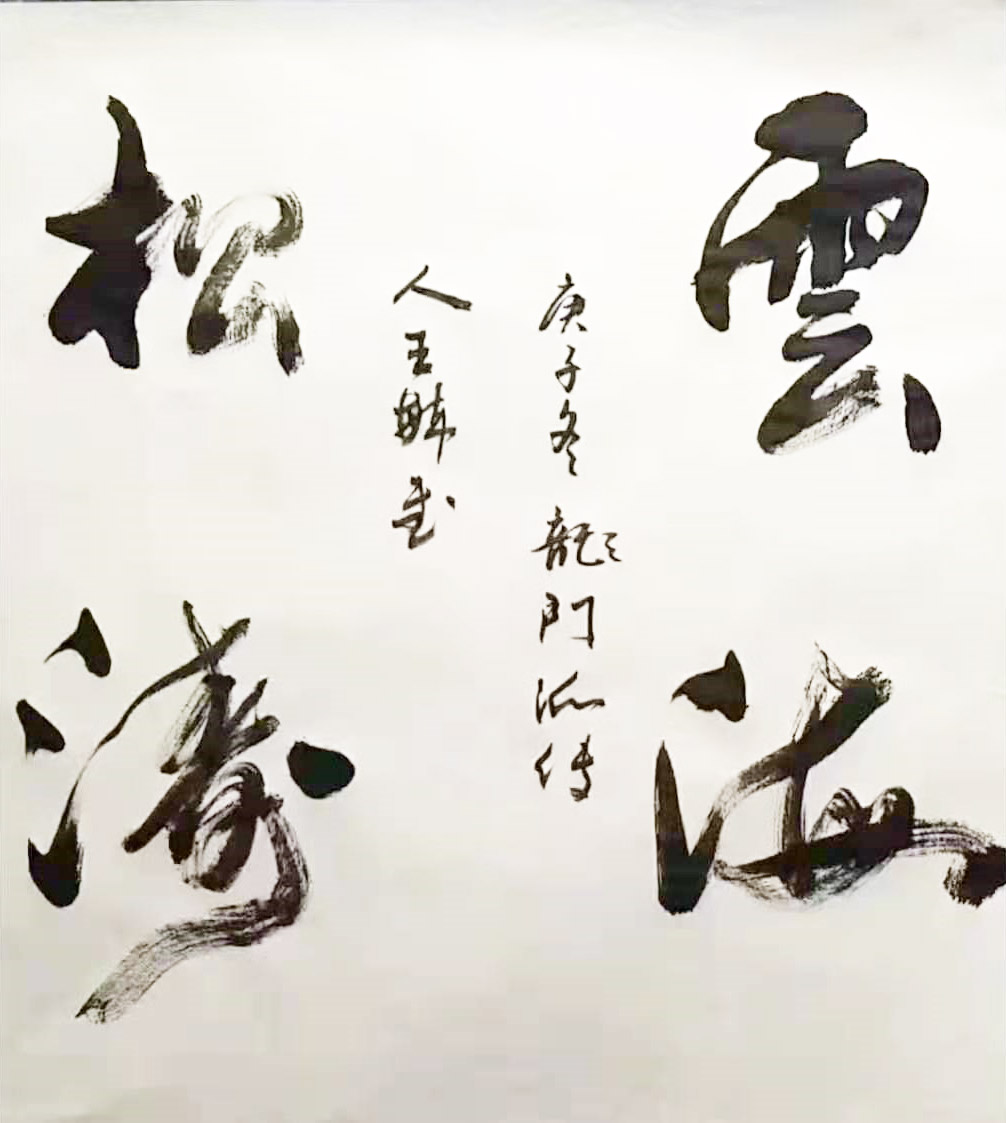 雲海
松濤
庚子冬龍門派传
人王